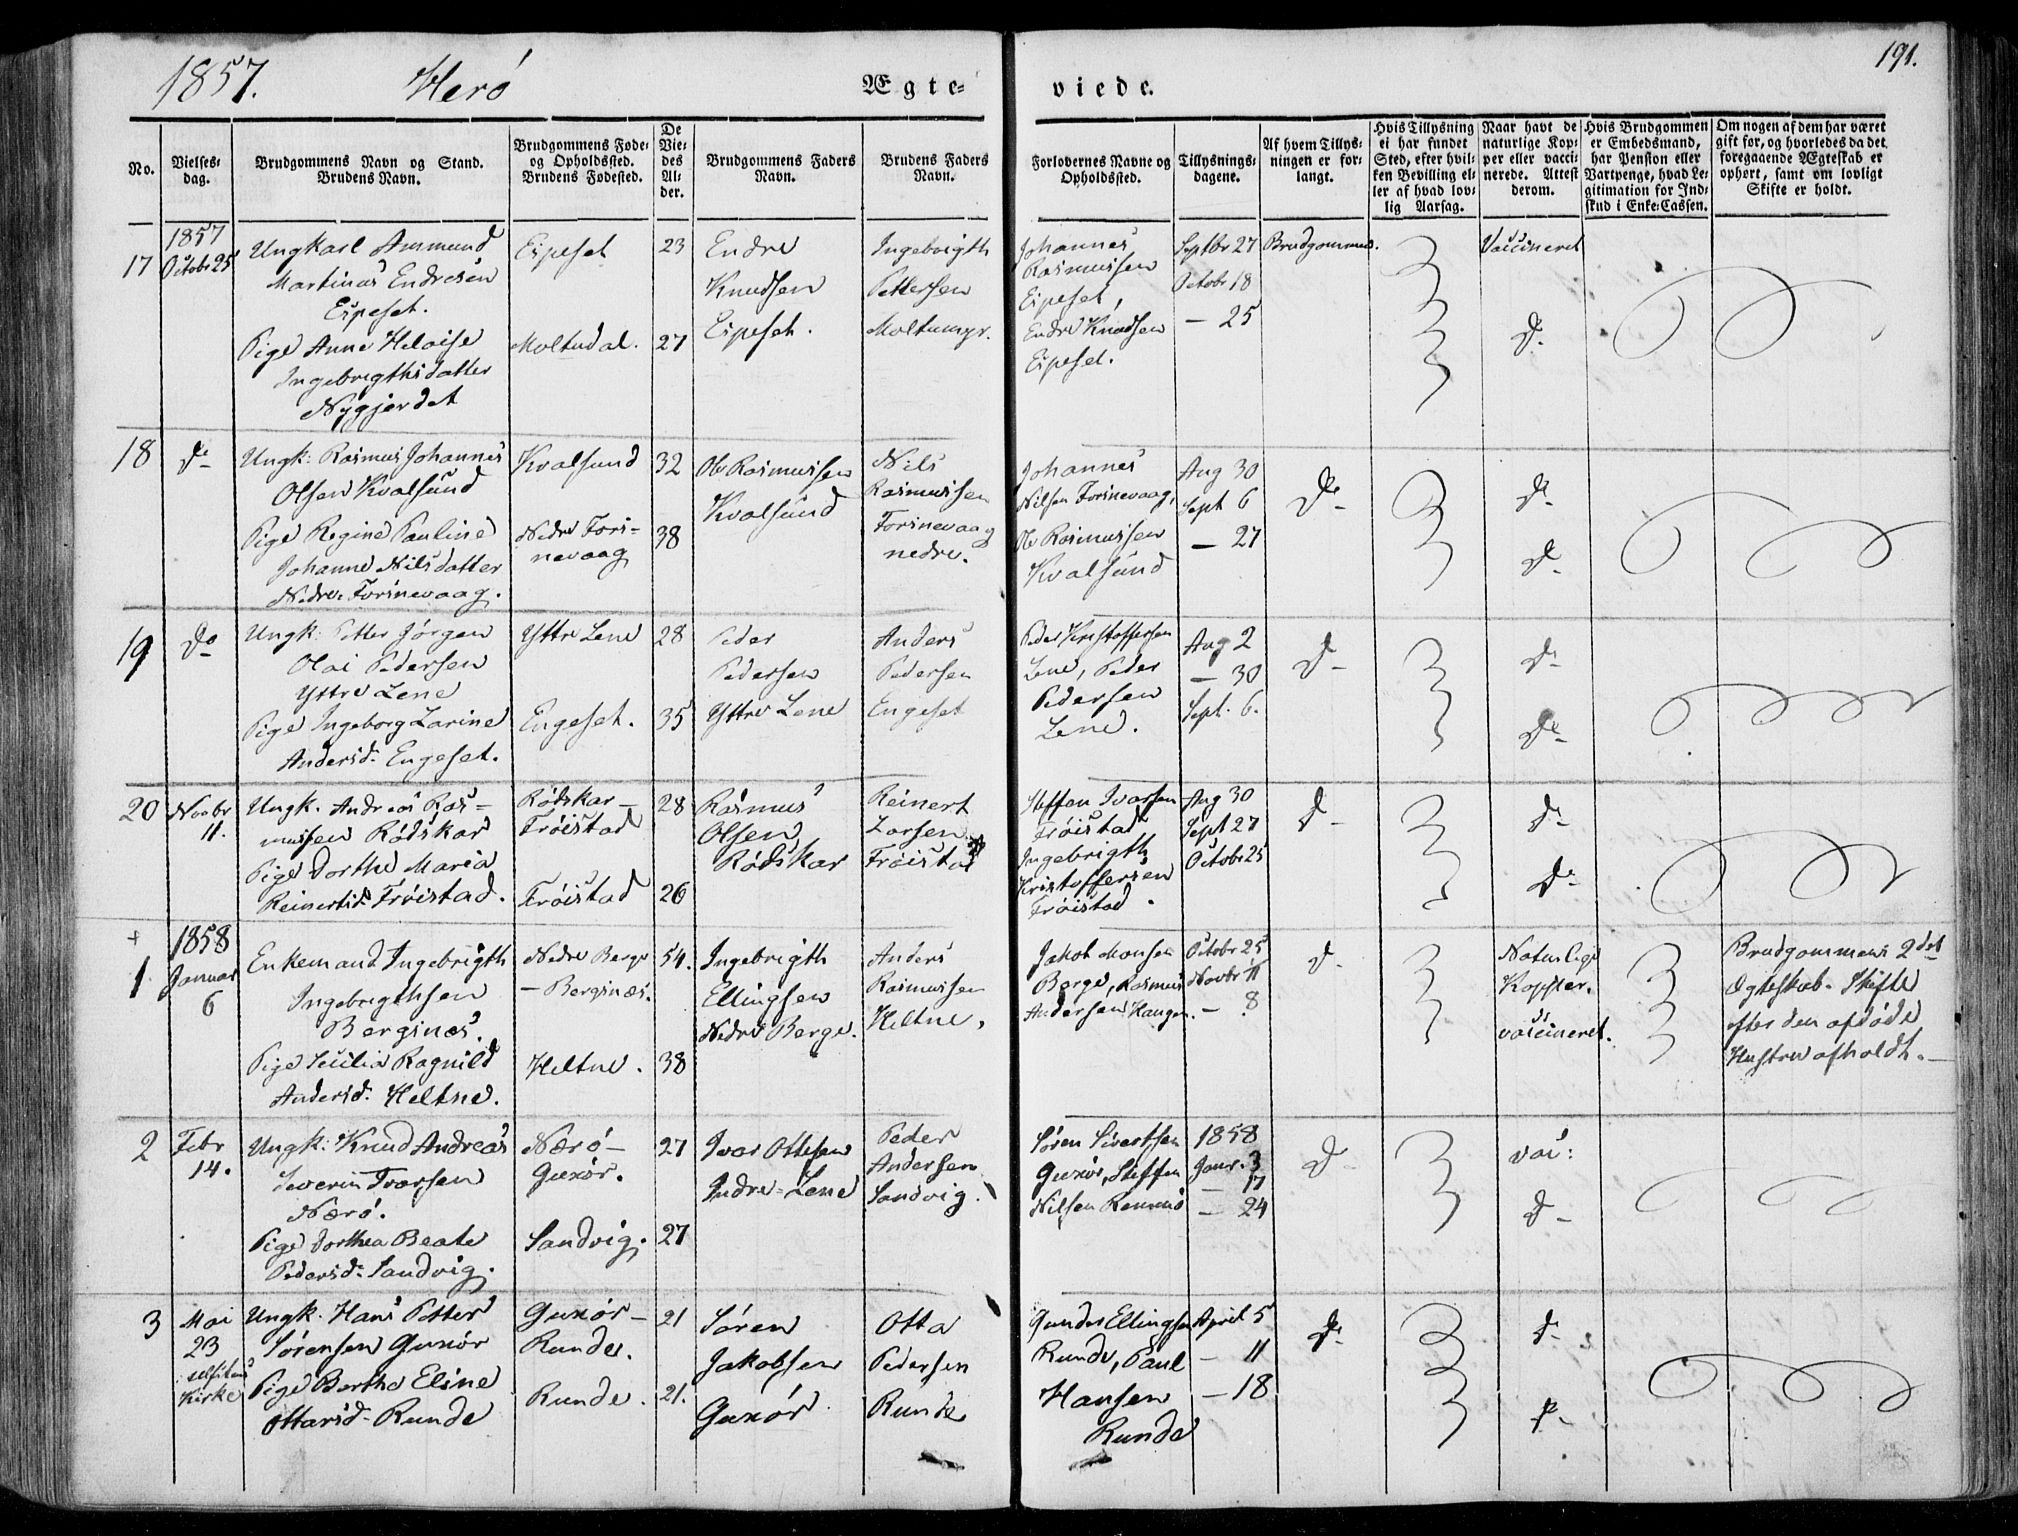 1857. Herö Ægte= viede. 191.
No.
Vielses=
dag.
Brudgommens Navn og Stand.
Brudens Navn.
Brudgommens Føde=
og Opholdssted.
Brudens Fødested.
De
Vie=
des
Al=
der.
Brudgommens Faders
Navn.
Brudens Faders
Navn.
Forlovernes Navne og
Opholdssted.
Tillysnings=
dagene.
Af hvem Tillys=
ningen er for=
langt.
Hvis Tillysning
ei har fundet
Sted, efter hvil=
ken Bevilling el=
ler af hvad lov=
lig Aarsag.
Naar havt de
naturlige Kop=
per eller vacci=
nerede. Attest
derom.
Hvis Brudgommen
er Embedsmand,
har Pension eller
Vartpenge, hvad Le=
gitimation for Ind=
skud i Enke=Cassen.
Om nogen af dem har været
gift før, og hvorledes da det
foregaaende Ægteskab er
ophørt, samt om lovligt
Skifte er holdt.
17
1857
Octobr 25
Ungkarl Ammund
Martinus Endresen
Eipeset.
Pige Anne Heloise
Ingebrigthsdatter
Nygjerdet
Eipeset
Moltudal.
23
27
Endre
Knudsen
Eipeset.
Ingebrigth
Pettersen
Moltumyr.
Johannes
Rasmussen
Eipeset,
Endre Knudsen
Eipeset.
Septbr 27
Octobr 18
— 25
Brudgommen.
Vaccineret
Do
18
Do
Ungk: Rasmus Johannes
Olsen Kvalsund
Pige Regine Pauline
Johanne Nilsdatter
Nedre Torinevaag.
Kvalsund
Nedre Tori-
nevaag
32
38
Ole Rasmussen
Kvalsund
Nils
Rasmussen
Torinevaag
nedre.
Johannes
Nilsen Torinevaag,
Ole Rasmussen
Kvalsund
Aug 30
Sept 6
— 27
Do
Do
Do
19
Do
Ungk: Petter Jörgen
Olai Pedersen
Yttre Lene
Pige Ingeborg Larine
Andersd. Engeset.
Yttre Lene
Engeset.
28
35
Peder
Pedersen
Yttre Lene
Anders
Pedersen
Engeset
Peder Kristoffersen
Lene, Peder
Pedersen
Lene.
Aug 2
— 30
Sept. 6.
Do
Do
Do
20
Novbr
11.
Ungk. Andreas Ras-
mussen Rödskar
Pige Dorthe Maria
Reinertsd. Fröistad.
Rödskar —
Fröistad
Fröistad
28
26
Rasmus
Olsen
Rödskar
Reinert
Larsen
Fröistad
Steffen Ivarsen
Fröistad
Ingebrigth
Kristoffersen
Fröistad.
Aug 30
Sept 27
Octobr 25
Do
Do
Do
1
1858
Januar
6
Enkemand Ingebrigth
Ingebrigthsen
Berginæs.
Pige Cecilia Ragnild
Andersd. Heltne.
Nedre Berge
— Berginæs.
Heltne.
54.
38
Ingebrigth
Ellingsen
Nedre Berge.
Anders
Rasmussen
Heltne.
Jakob Monsen
Berge, Rasmus
Andersen Haugen.
Octobr 25
Novbr 11
— 8
Do
Naturlige
Kopper.
vaccineret.
Brudgommens 2det
Ægteskab. Skifte
efter den afdöde
Hustru afholdt. —
2
Febr
14.
Ungk: Knud Andreas
Severin Ivarsen
Nærö.
Pige Dorthea Beate
Pedersd. Sandvig.
Nærö —
Gurör.
Sandvig.
27
27
Ivar Ottesen
Indre=Lene
Peder
Andersen
Sandvig.
Sören Sivertsen
Gurör, Steffen
Nilsen Remmö
1858
Janr. 3
— 17
— 24
Do
vac:
Do
3
Mai
23
Kirke
Ungk. Hans Petter
Sörensen Gurör
Pige Berthe Eline
Ottarsd. Runde
Gurör —
Runde.
Runde.
21
21.
Sören
Jakobsen
Gurör
Otta
Pedersen
Runde
Gunder Ellingsen
Runde, Paul
Hansen
Runde
April 5
— 11
— 18
Do
Do
Do